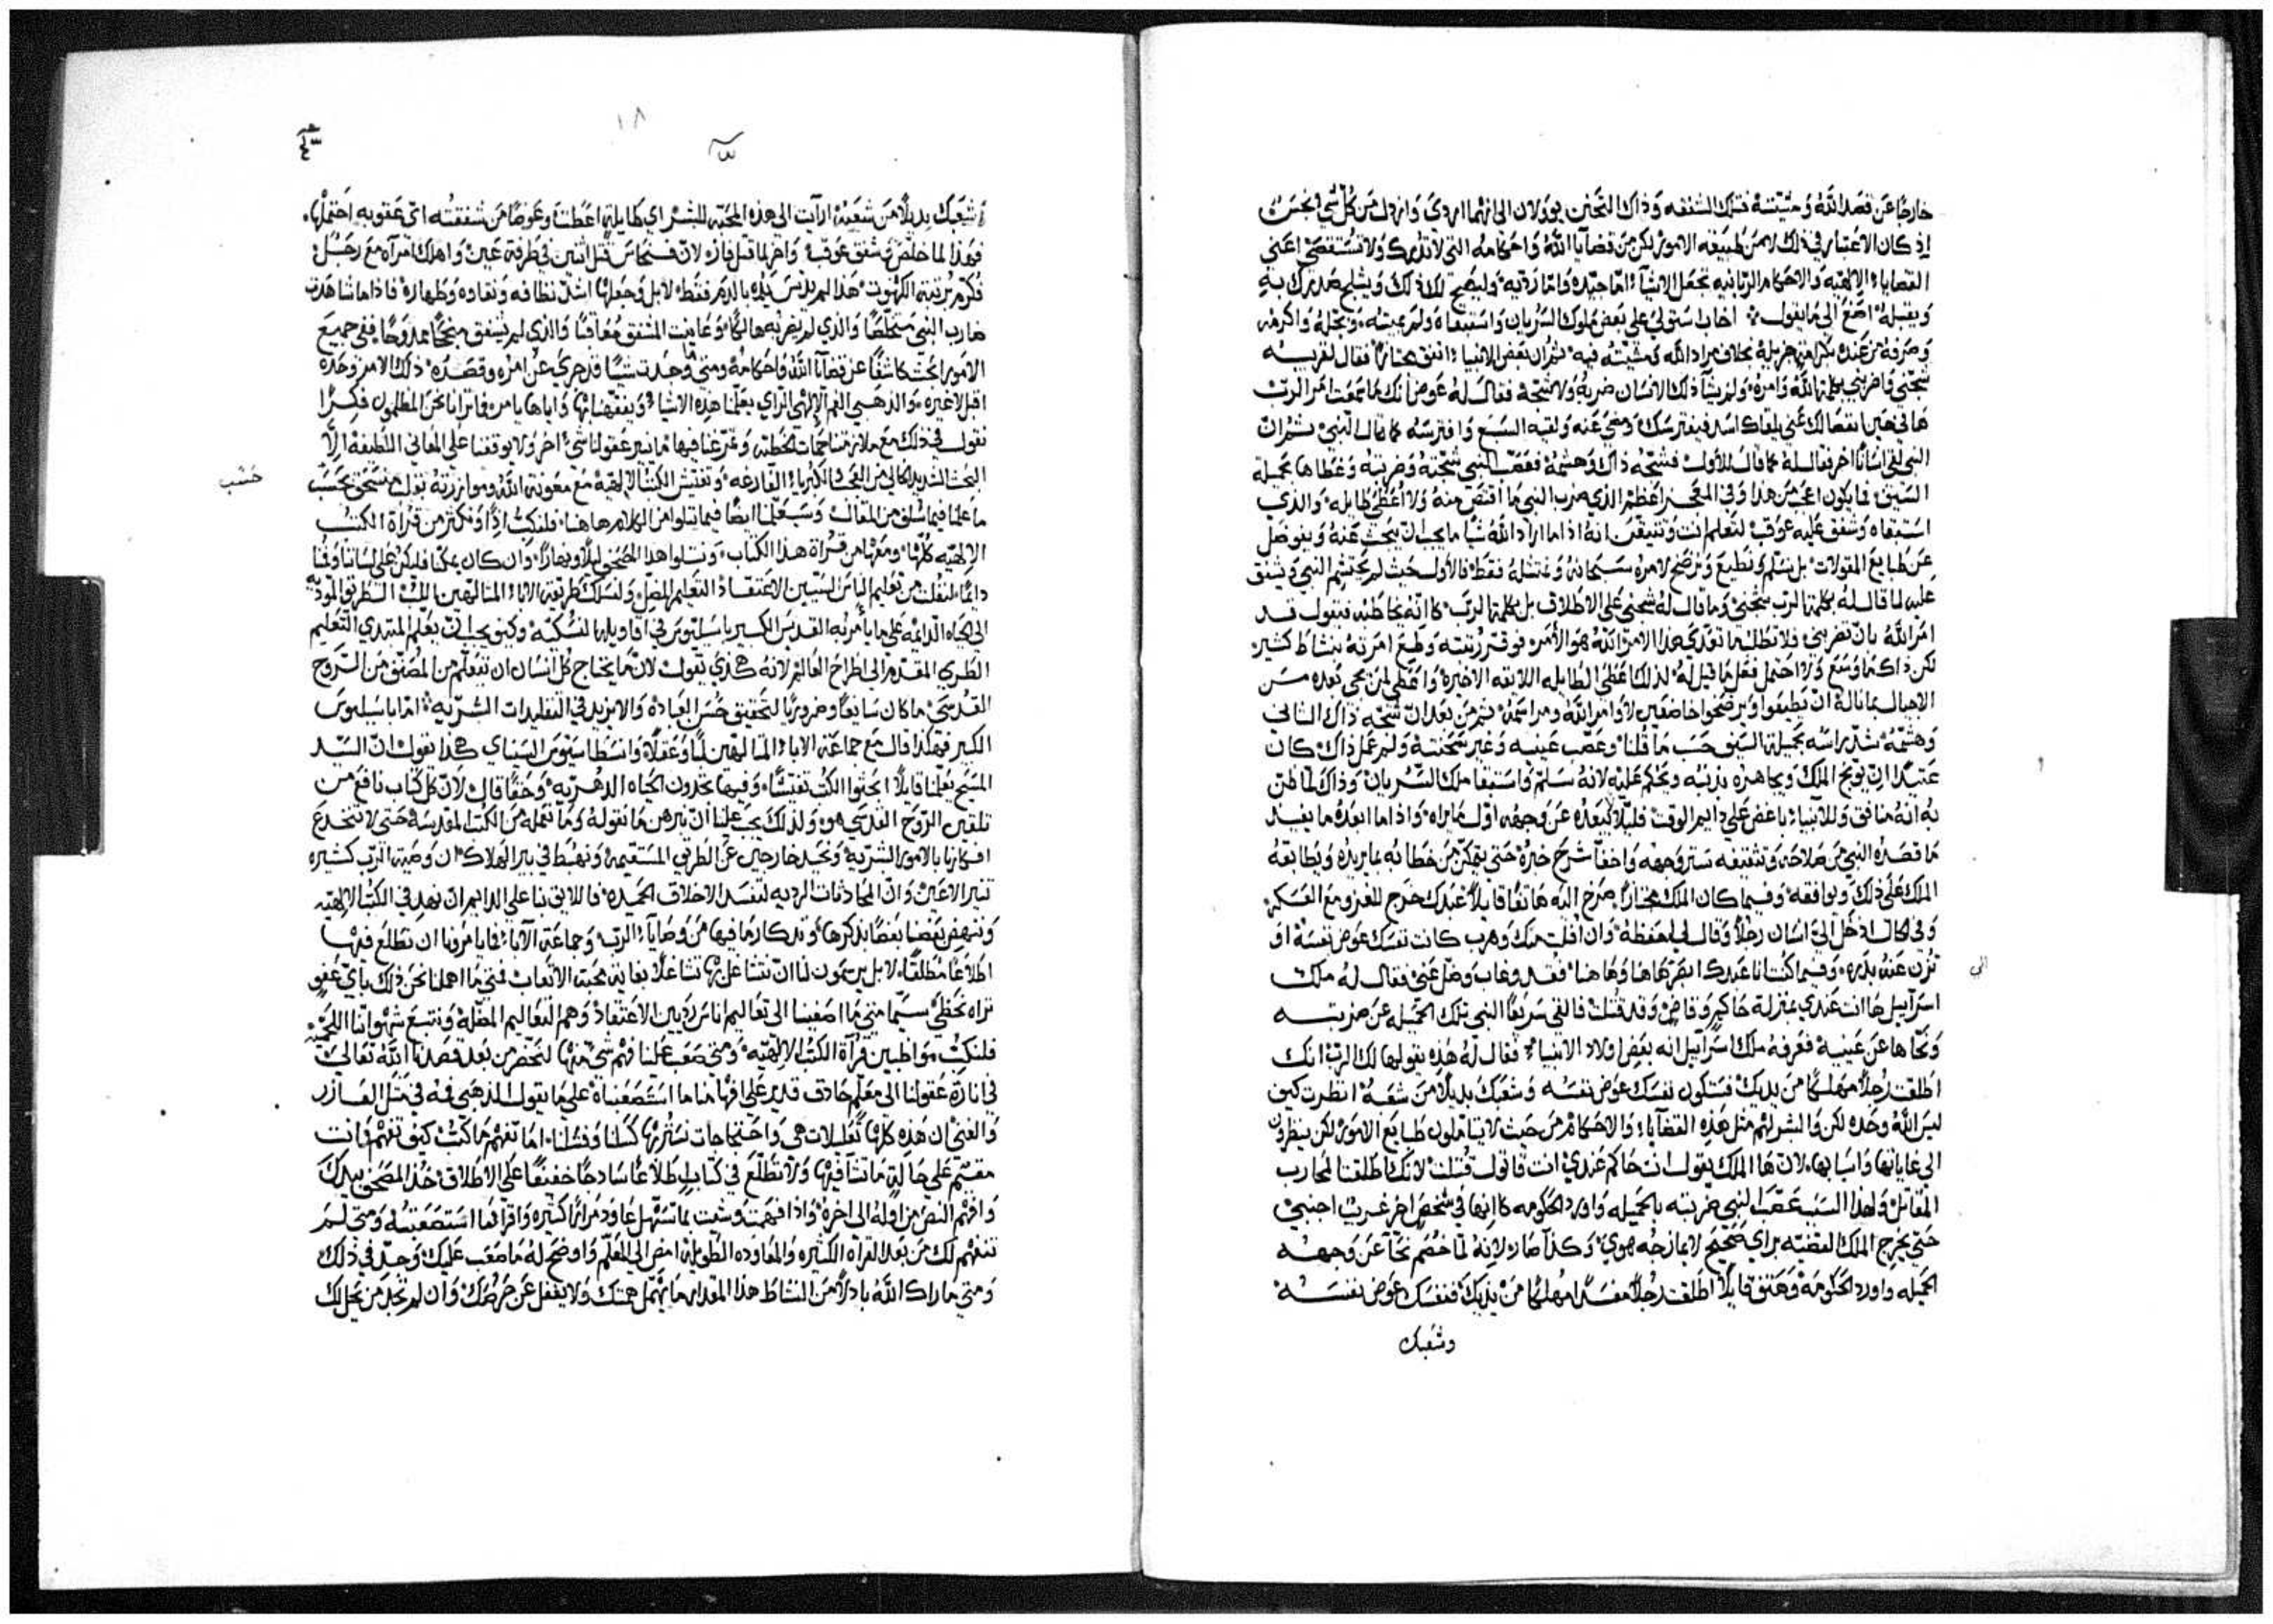 خارجًا عن قصد الله ومشيته فتلك الشفقه وذاك التحنن يوولان الى انهما اردى وارذل من كل شي نجس
اذ كان الاعتبار في ذلك لا من طبيعة الامور لكن من قضايا الله واحكامه التي لا تدرك ولا تستقصى اعني
القضايا الالهيه والاحكام الربانيه تجعل الاشيا اما جيده واما رديه وليصح لك ذلك ويثلج صدرك به
ويقبله اصغ الى ما يقول اخاب استولى على بعض ملوك السريان واستبقاه ولم يميته وبجله واكرمه
وصرفه من عنده بكرامة جزيله بخلاف مراد الله ومشيته فيه ثم ان بعض الانبيا اتفق مجتازًا فقال لقريبه
شجني واضربني بكلمة الله وامره ولم يشا ذلك الانسان ضربه ولا شجه فقال له عوض انك ما سمعت امر الرب
ها في حين انفصالك عني يلقاك اسد فيفترسك ومضى عنه ولقيه السبع وافترسه كما قال النبي ثم ان
النبي لقي انسانًا اخر فقال له كما قال للاول فشجه ذاك وهشمه فعصب النبي شجته وضربته وغطاها بجميلة
السيف فما يكون اعجب من هذا وفي المعجز اعظم الذي ضرب النبي ما اقتص منه ولا اعطي طايله والذي
استبقاه وشفق عليه عوقب لتعلم انت وتتيقن انه اذا ما اراد الله شيا ما يجب ان يبحث عنه ويفوصل
عن طبايع المقولات بل نسلم ونطيع ونرضخ لامره سبحانه ونمتثله فقط فالاول حيث لم يحتشم النبي ويشفق
عليه لما قال له بكلمة الرب شجني وما قال له شجني على الاطلاق بل بكلمة الرب كانه يخاطبه فيقول قد
امر الله بان تضربني فلا تطلب ما تعدى هذا الامر الله هو الامر فوقر رتبته وطع امرته بنشاط كثير
لكن ذاك ما وسع ولا احتمل فعل ما قيل له لذلك اعطى الطايله اللايقه الاخيره واعطى لمن يجي بعده من
الاجيال بما ناله ان يطيعوا ويرضخوا خاضعين لاوامر الله ومراسمه ثم من بعد ان شجه ذاك الثاني
وهشمه شد راسه بجميلة السيف حسب ما قلنا وعصب عينيه وغير سحنته ولم عمل ذاك كان
عتيدًا ان يوبخ الملك ويجاهره بذنبه ويحكم عليه لانه سلم واستبقا ملك السريان وذاك لما ظن
به انه منافق وللانبيا باغض على دايم الوقت فليلا يبعده عن وجهه اول ما يراه واذا ما ابعده ما يفيد
ما قصده النبي من صلاحه وتثقيفه ستر وجهه واخفا شرح خبره حتى يتمكن من خطابه بما يريده ويطابقه
الملك على ذلك ويوافقه وفيما كان الملك مجتازًا صرخ اليه هاتفًا قايلًا عبدك خرج للغزو مع العسكر
وفي الحال ادخل الي انسان رجلًا وقال لي احفظه وان افلت منك وهرب كانت نفسك عوض نفسه او
تزن عنه بدره وفيما كنت انا عبدك ابصر هاهنا وهاهنا فقد وغاب وضل عني فقال له ملك
اسراييل ها انت عندي بمنزلة حاكم وقاض وقد قتلت فالقى سريعًا النبي تلك الجميله عن ضربته
ونحاها عن عينيه فعرفه ملك اسراييل انه بعض اولاد الانبيا فقال له هذه يقولها لك الرب انك
اطلقت رجلًا مهلكًا من يديك فستكون نفسك عوض نفسه وشعبك بديلًا من شعبه انظرت كيف
ليس الله وحده لكن والبشر لهم مثل هذه القضايا والاحكام من حيث لا يتاملون طبايع الامور لكن ينظرون
الى غاياتها واسبابها لان ها الملك يقول انت حاكم عندي انت قاتول قتلت لانك اطلقت المحارب
المقاتل ولهذا السبب عصب النبي ضربته بالجميله واورد الحكومه كانها في شخص اخر غريب اجنبي
حتى يخرج الملك القضيه براي صحيح لا يمازجه هوى وكذا صار لانه لما خصم نحا عن وجهه
الجميله واورد الحكومه وهتف قايلًا اطلقت رجلًا مفسدًا مهلكًا من يديك فنفسك عوض نفسه
وشعبك
الي
١٨
وشعبك بديلًا من شعبه ارايت الى هذه المحبه للبشر اي طايلة اعطت وعوضًا من شفقته اي عقوبه احتملها
فهذا لما خلص وشفق عوقب واخر لما قتل فاز لان فنحاس قتل اثنين في طرفة عين واهلك امرآه مع رجل
فكرم برتبة الكهنوت هذا لم يدنس يده بالدم فقط لا بل وجعلها اشد نظافه ونقاوه وطهاره فاذا ما شاهدت
ضارب النبي متخلصًا والذي لم يضربه هالكًا وعاينت المشفق معاقبًا والذي لم يشفق منجحًا ممدوحًا ففي جميع
الامور ابحث كاشفًا عن قضايا الله واحكامه ومتى ما وجدت شيًا قد جرى عن امره وقصده ذلك الامر وحده
اقبل لا غيره والذهبي الفم الالهي الراي يعلمنا هذه الاشيا ويفقهنا بها واياها يامر فما ترانا نحن المظلمون فكرًا
نقول في ذلك مع ملازمتنا حمات الخطيه وتمرغنا فيها ما ينير عقولنا شي اخر ولا يوقفنا على المعاني اللطيفه الا
البحث الشديد الخالي من التجاذب والكبريا الفارغه وتفتيش الكتب الالهيه مع معونة الله وموازرته نقول نستحق بحسب
حسب
ما علمنا فيما سلف من المقال وسيعلمنا ايضًا فيما يتلوا من الكلام هاهنا فلنكب اذًا ونكثر من قراة الكتب
الالهيه كلها ومعها من قراة هذا الكتاب ونتلوا هذا المصحف ليلًا ونهارًا وان كان يمكنا فليكن على لساننا وفمنا
دايمًا لنفلت من تعليم الناس السيين الاعتقاد التعليم المضل ولنسلك طريقة الابا المتالهين تلك الطريق المودية
الى الحياه الدايمه على ما يامر به القديس الكبير باسليوس في اقاويله النسكيه وكيف يجب ان يعلم المبتدي التعليم
الطري المقدم الى اطراح العالم لانه هكذى يقول لان ما يحتاج كل انسان ان يتعلم من المصنف من الروح
القدسي ما كان سايغًا وضروريًا لتحقيق حسن العباده والا نزيد في التقليدات البشريه اما باسيليوس
الكبير فهكذا قال مع جماعة الابا المتالهين لبًا وعقلًا وانسطاسيوس السيناي هكذا يقول ان السيد
المسيح يعلمنا قايلًا ابحثوا الكتب تفتيشًا وفيها تجدون الحياه الدهريه وحقًا قال لان كل كتاب نافع من
تلقين الروح القدسي هو ولذلك يجب علينا ان نبرهن ما نقوله وما نعمله من الكتب المقدسه حتى لا تنخدع
افكارنا بالامور البشريه ونحيد خارجين عن الطريق المستقيمه ونهبط في بير الهلاك ان وصية الرب كشيره
تنير الاعين وان المحادثات الرديه لتفسد الاخلاق الحميده فاللايق بنا على الدايم ان نهذ في الكتب الالهيه
وننهض بعضنا بعضًا بذكرها وتذكار ما فيها من وصايا الرب وجماعة الابا فما يامرونا ان نطلع فيها
اطلاعًا مطلقًا لا بل يرسمون لنا ان نتشاغل بها تشاغلًا بغاية محبة الاتعاب فمتى ما اهملنا نحن ذلك باي عفو
نراه نحظى سيما متى ما اصغينا الى تعاليم اناس رديين الاعتقاد وهم التعاليم المضله ونتبع شهواتنا اللحميه
فلنكب مواظبين قراة الكتب الالهيه ومتى صعب علينا فهم شي منها لنحضر من بعد قصدنا الله تعالى
في انارة عقولنا الى معلم حاذق قدير على افهامنا ما استصعبناه على ما يقول الذهبي فمه في مثل العازر
والغني ان هذه كلها تعليلات هي واحتجاجات نستر بها كسلنا وفشلنا اما تفهم ما كتب كيف تفهم وانت
مقيم على حالة ما تشا فيها ولا تطلع في كتاب اطلاعًا ساذجًا خفيفًا على الاطلاق خذ المصحف بيدك
وافهم النص من اوله الى اخره واذا فهمت وشيت بما تسهل عاود مرارًا كثيره واقرا ما استصعبته ومتى لم
تتفهم لك من بعد القراه الكثيره والمعاوده الطويله امض الى المعلم واوضح له ما صعب عليك وجد في ذلك
ومتى ما راك الله باذلًا من النشاط هذا المقدار ما يهمل همتك ولا يغفل عن حرصك وان لم تجد من يحل لك